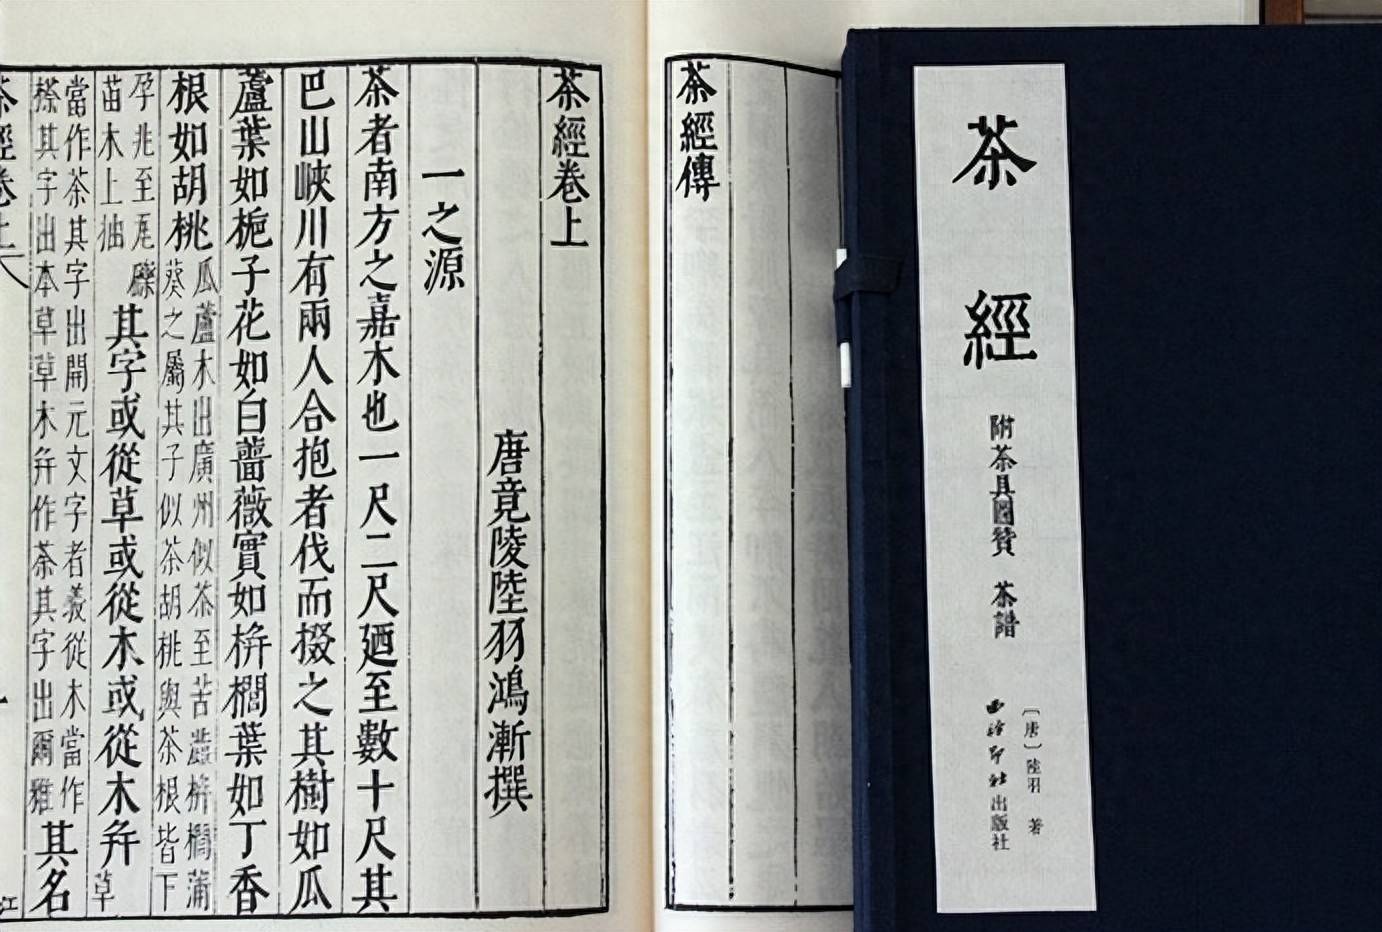 茶經
附茶具圖贊 茶譜
〔唐〕陸羽 著
西泠印社出版社
茶經傳
茶經卷上
唐竟陵陸羽鴻漸撰
一之源
茶者南方之嘉木也一尺二尺廼至數十尺其
巴山峽川有兩人合抱者伐而掇之其樹如瓜
蘆葉如梔子花如白薔薇實如栟櫚葉如丁香
根如胡桃瓜蘆木出廣州似茶至苦澁栟櫚蒲
葵之屬其子似茶胡桃與茶根皆下
孕兆至瓦礫
苗木上抽其字或從草或從木或從木并草
當作茶其字出開元文字者義從木當作
搽其字出本草草木并作荼其字出爾雅其名
茶經卷上